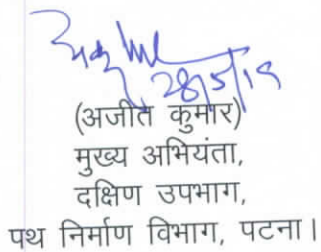 28/5/19
(अजीत कुमार)
मुख्य अभियंता,
दक्षिण उपभाग,
पथ निर्माण विभाग, पटना।